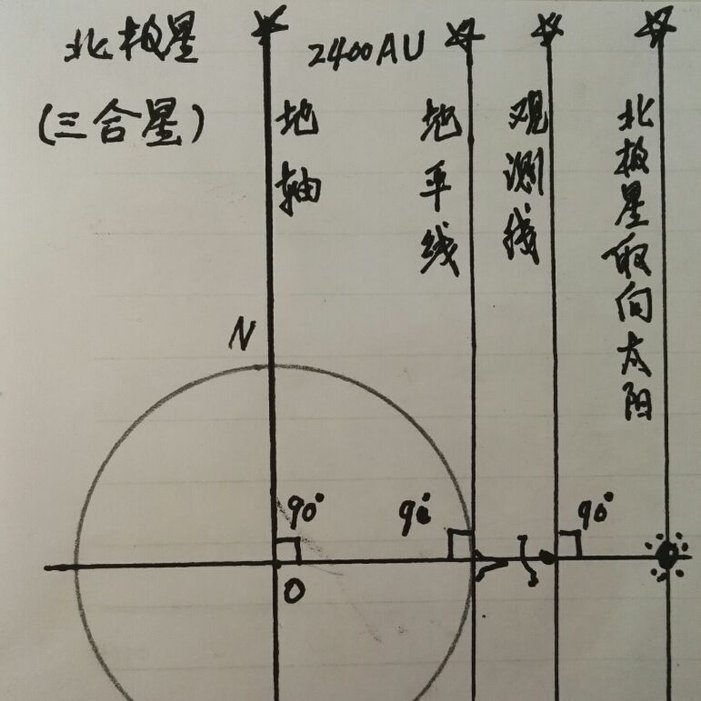 北极星
2400AU
(三合星)
地轴
地平线
观测线
北极星取向太阳
N
90°
90°
90°
O